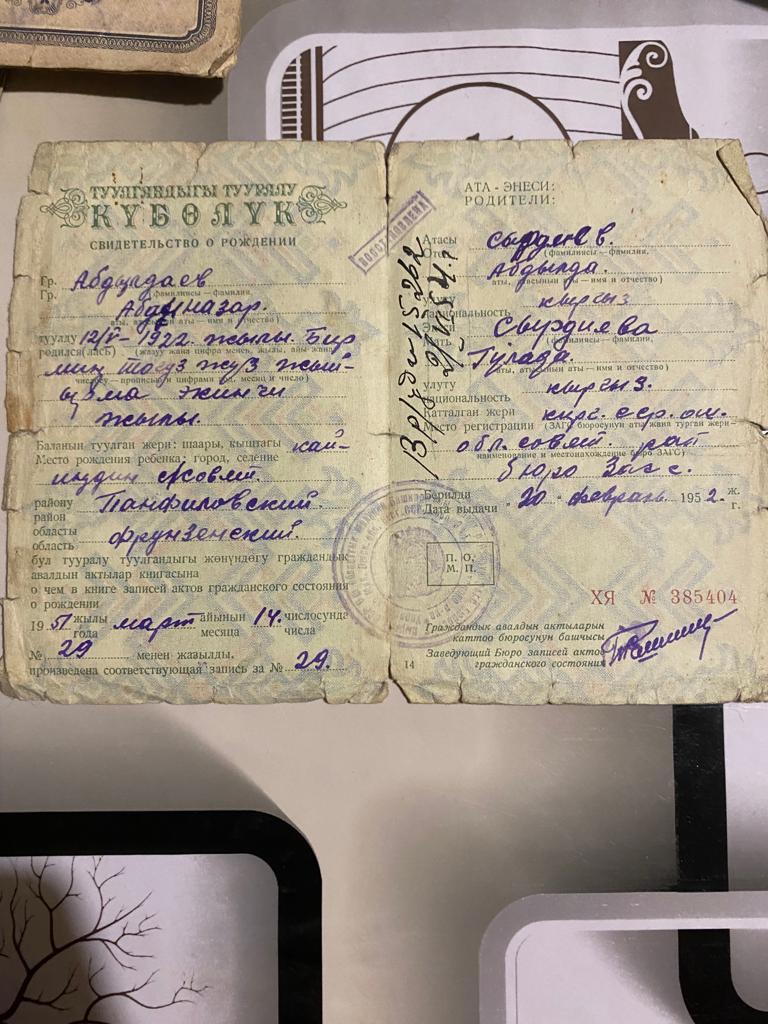 ТУУЛГАНДЫГЫ ТУУРАЛУ
КҮБӨЛҮК
СВИДЕТЕЛЬСТВО О РОЖДЕНИИ
Гр. Абдылдаев
Гр. (фамилиясы — фамилия)
Абдыназар.
аты, атасынын аты — имя и отчество)
туулду 12/V - 1922. жылы. Бир
родился(лась)
миң тогуз жүз жый-
чество — прописью и цифрами год, месяц и число)
ырма экинчи
жылы.
Баланын туулган жери: шаары, кыштагы кай-
Место рождения ребенка: город, селение
ыңдин совет.
району Панфиловский.
район
областы Фрунзенский.
область
бул тууралу туулгандыгы жөнүндөгү граждандык
авалдын актылар книгасына
о чем в книге записей актов гражданского состояния
о рождении
19 51 жылы март айынын 14. числосунда
года месяца числа
№ 29 менен жазылды.
произведена соответствующая запись за № 29.
ВОССТАНОВЛЕНА
АТА - ЭНЕСИ:
РОДИТЕЛИ:
Атасы Сырдиев.
(фамилиясы — фамилия)
Абдылда.
аты, атасынын аты — имя и отчество)
кыргыз
национальность
Энеси Сырдиева
Мать (фамилиясы — фамилия,
Гулада.
аты, атасынын аты — имя и отчество)
улуту кыргыз.
национальность
Катталган жери кирг. сср. ош.
Место регистрации (ЗАГС бюросунун аты жана турган жери—
обл. совет. рай
наименование и местонахождение бюро ЗАГС)
бюро Загс.
Берилди 20 февраль 1952. ж.
Дата выдачи г.
П. О.
М. П.
ХЯ № 385404
Граждандык авалдын актыларын
каттоо бюросунун башчысы
Заведующий Бюро записей актов
гражданского состояния
14